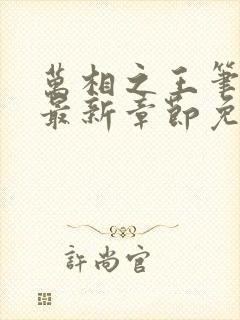 萬相之王筆
最新章節免
許尚官